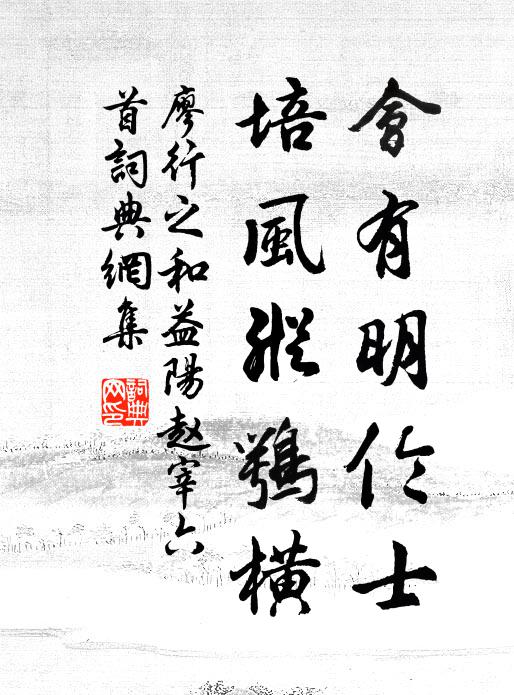 會有明伦士
培風縱鶚橫
廖行之和益陽赵宰六
首詞典網集
詞典
网印